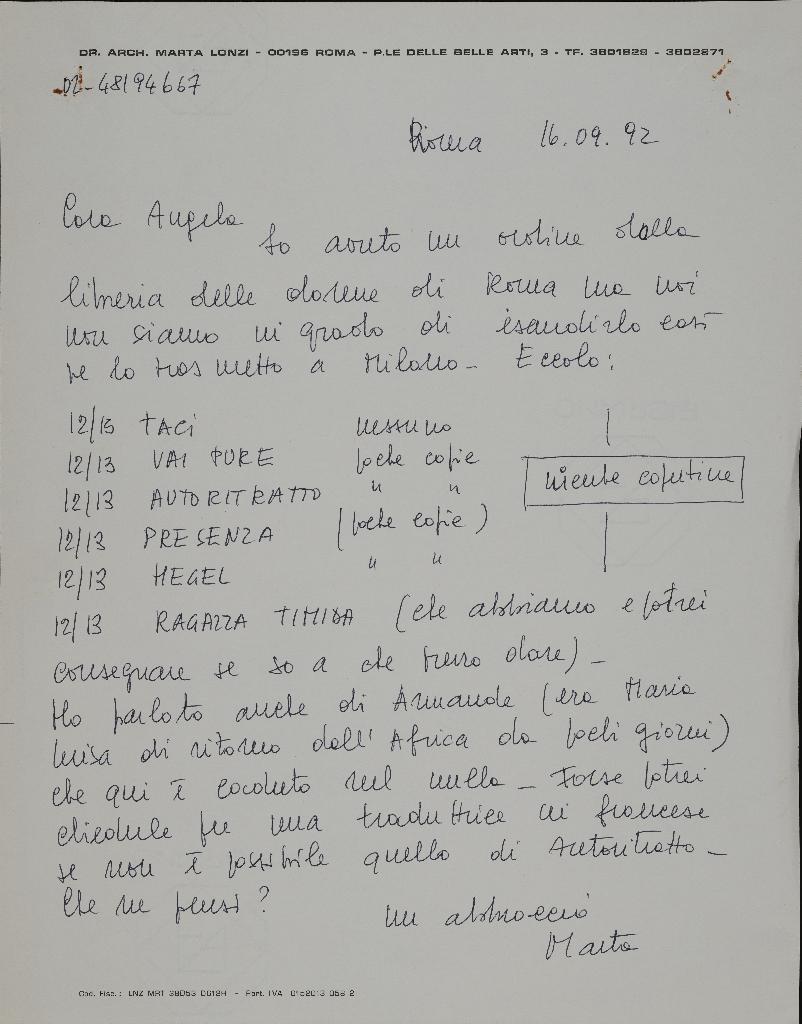 DR. ARCH. MARTA LONZI - 00196 ROMA - P.LE DELLE BELLE ARTI, 3 - TF. 3601828 - 3602871
02-48194667
Roma 16.09.92
Cara Angela
ho avuto un ordine dalla
libreria delle donne di Roma ma noi
non siamo in grado di esaudirlo così
te lo trasmetto a Milano - Eccolo:
12/13 TACI nessuno
12/13 VAI PURE poche copie
12/13 AUTORITRATTO " "
niente copertine
12/13 PRESENZA (poche copie)
12/13 HEGEL " "
12/13 RAGAZZA TIMIDA (che abbiamo e potrei
consegnare se so a che prezzo dare) -
Ho parlato anche di Armande (era Maria
luisa di ritorno dall'Africa da pochi giorni)
che qui è caduto nel nulla - Forse potrei
chiederle per una traduttrice in francese
se non è possibile quello di Autoritratto -
Che ne pensi?
un abbraccio
Marta
Cod. Fisc.: LNZ MRT 38D53 D612H - Part. IVA